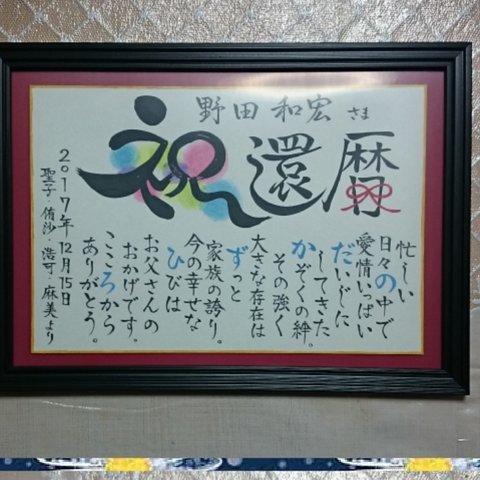 野田和宏さま
祝還暦
忙しい
日々の中で
愛情いっぱい
だいじに
してきた
かぞくの絆。
その強く
大きな存在は
ずっと
家族の誇り。
今の幸せな
ひびは
お父さんの
おかげです。
こころから
ありがとう。
2017年12月15日
聖子・侑沙・浩可・麻美より